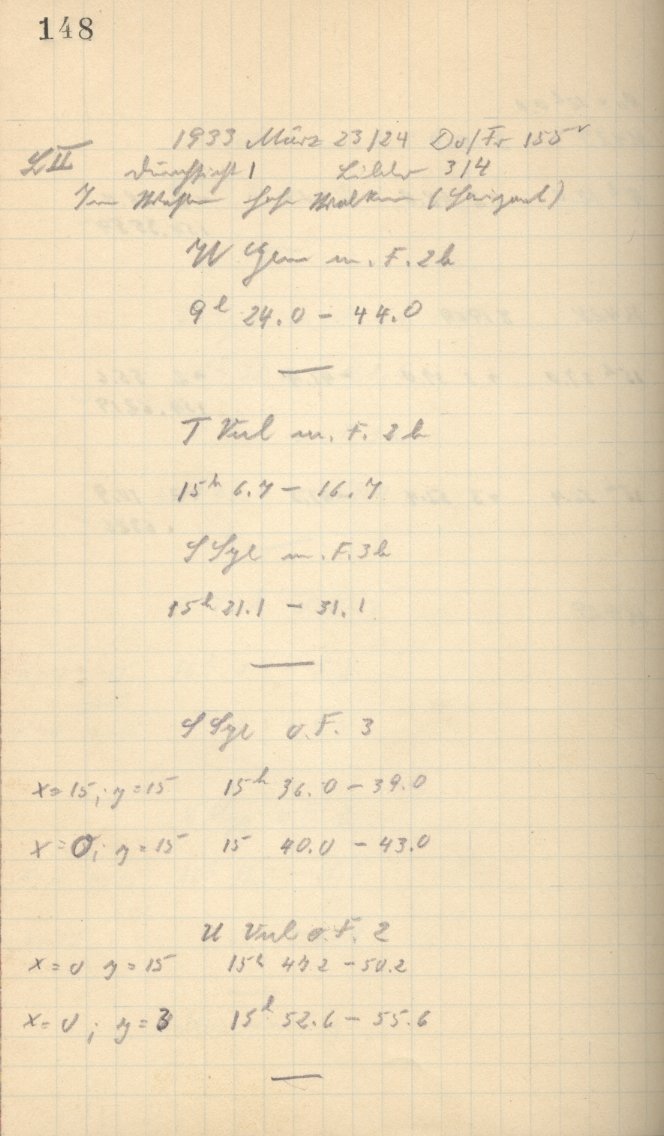 148
1933 März 23/24 Do/Fr 155
L II Durchsicht 1 Bilder 3/4
Im Westen hohe Wolken
W Gem m. F. 2h
9h 24.0 – 44.0
T Vul m. F. 2h
15h 6.7 – 16.7
S Sge m. F. 3h
15h 21.1 – 31.1
S Sge o. F. 3
x=15; y=15 15h 36.0 – 39.0
x=0; y=15 15 40.0 – 43.0
U Vul o. F. 2
x=0 y=15 15h 47.2 – 50.2
x=0; y=3 15h 52.6 – 55.6